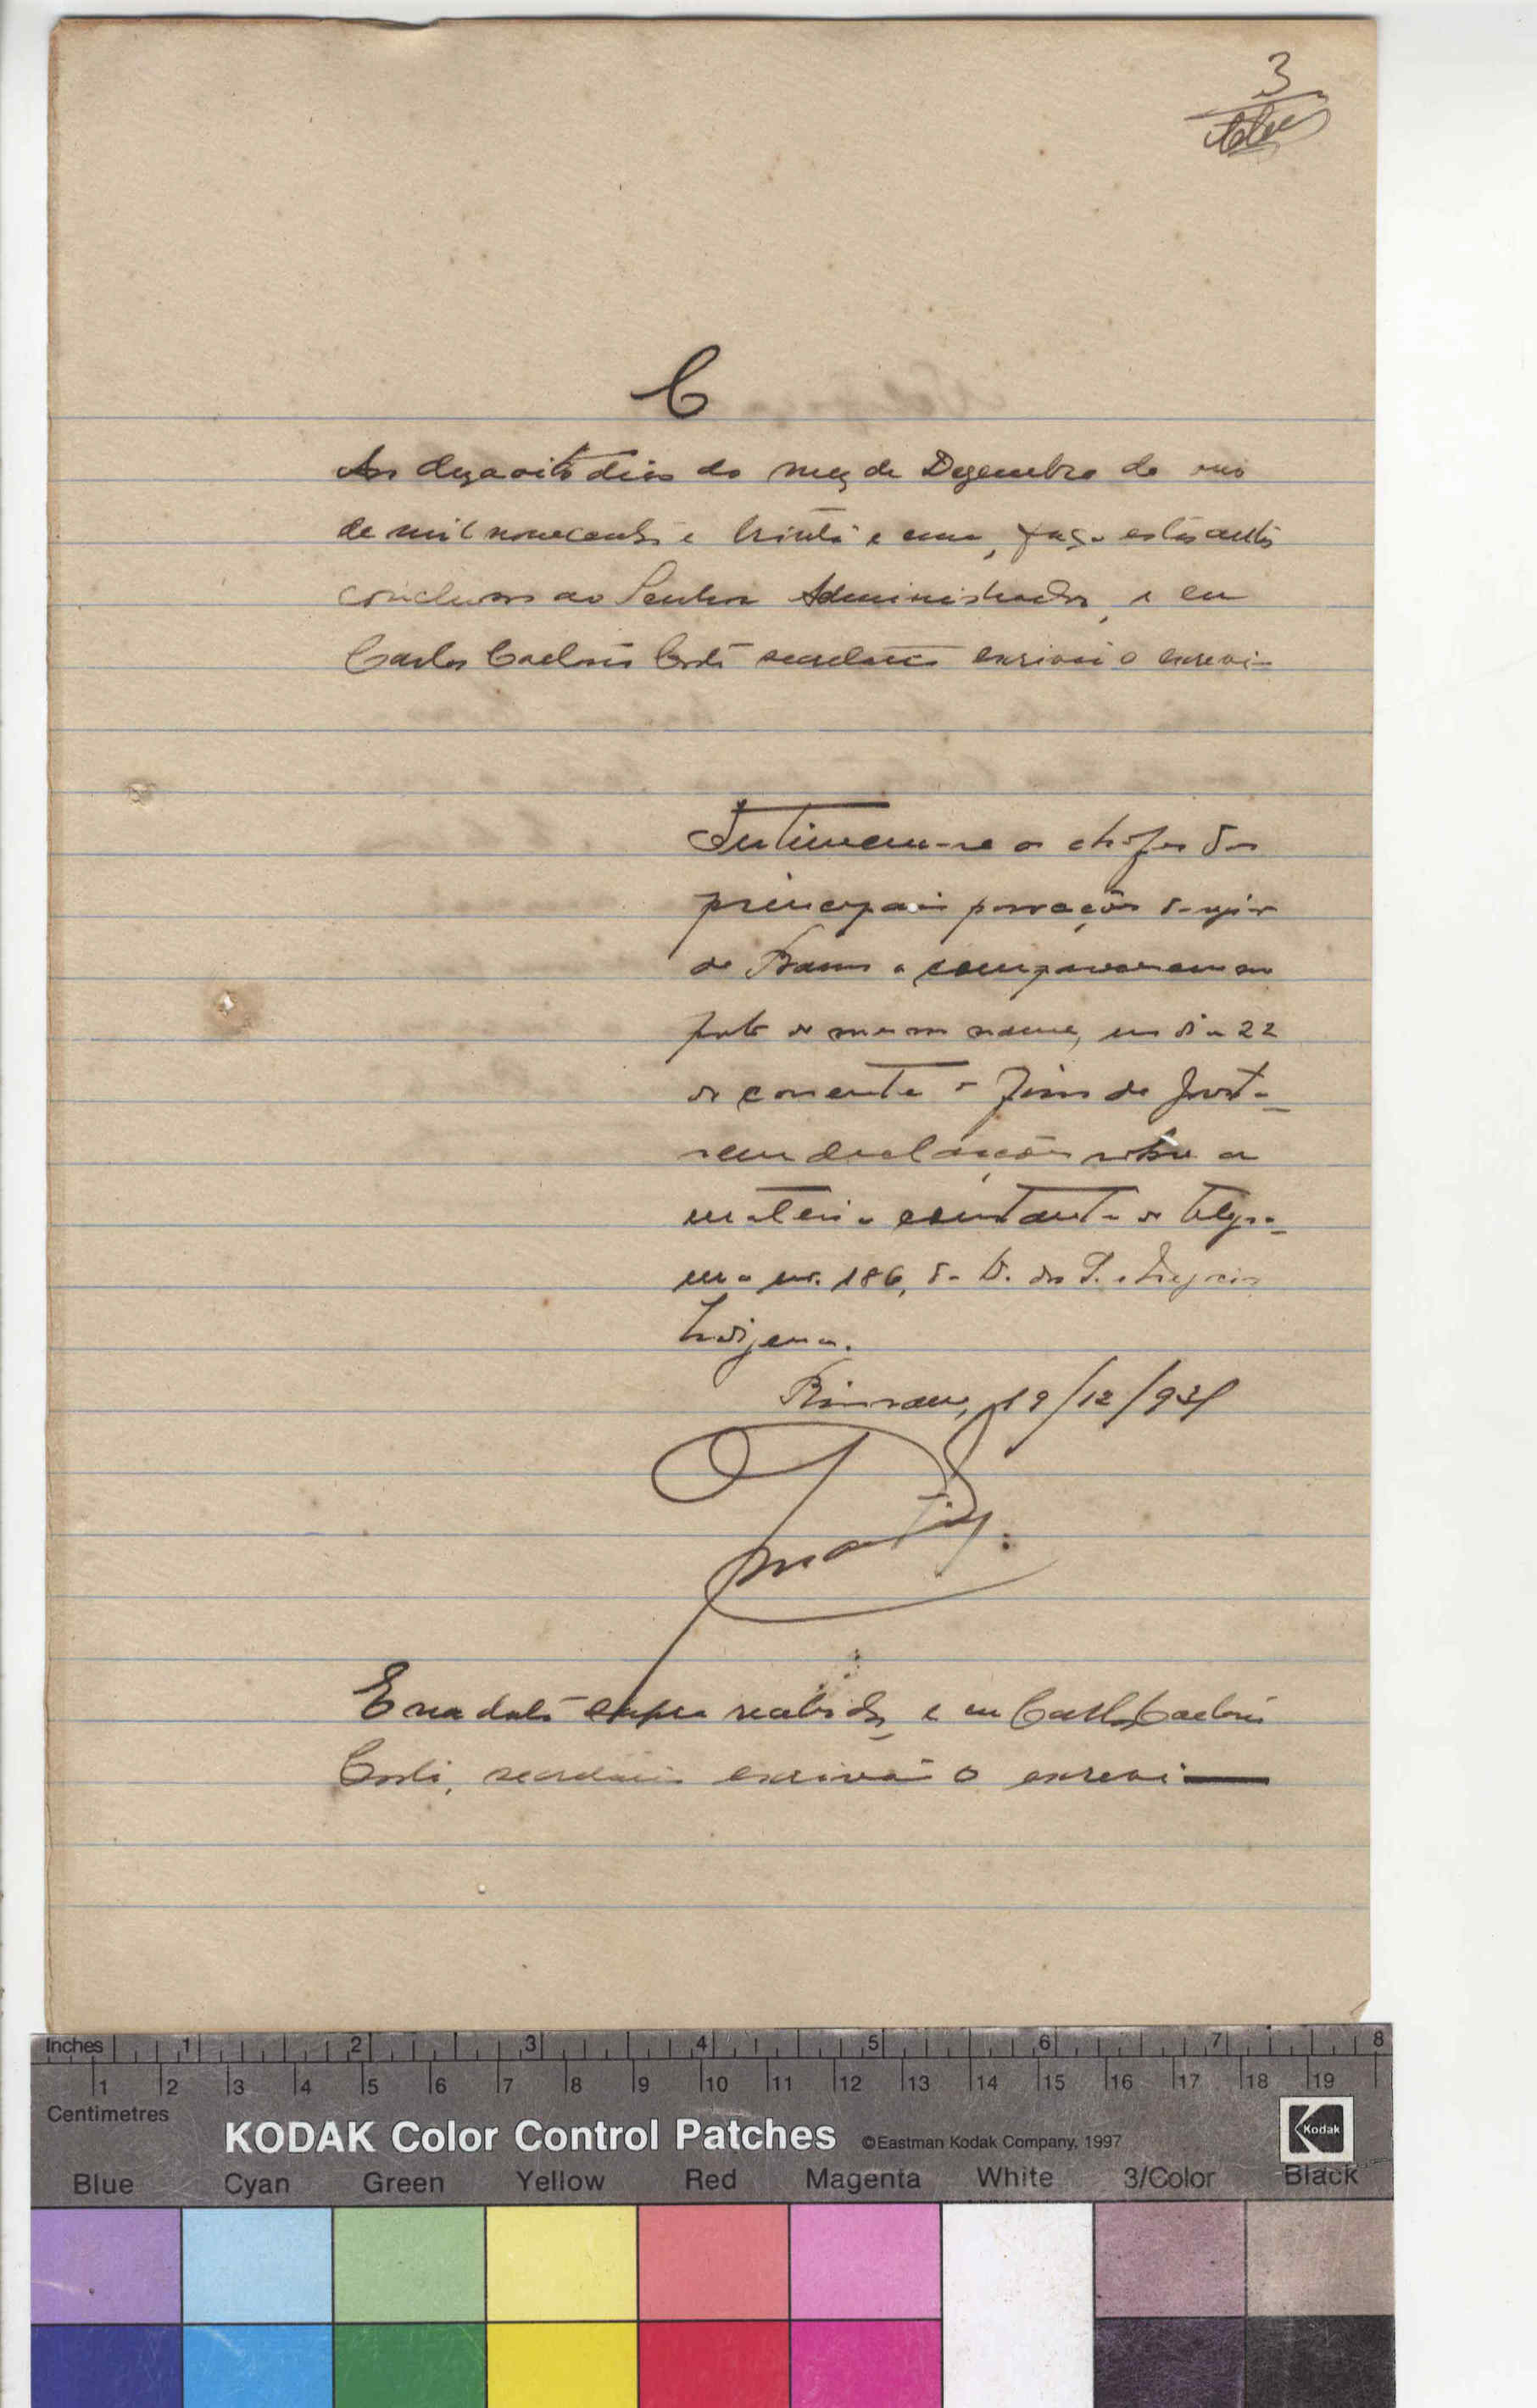 3
C
Aos dezaoito dias do mez de Dezembro do ano
de mil novecentos e trinta e um, faço estes autos
conclusos ao Senhor Administrador, e eu
Carlos Caetano Costa secretario escrivão o escrevi
Intimem-se os chefes das
principais povoações da região
de a comparecerem no
posto do mesmo nome, no dia 22
do corrente a fim de prest-
arem declarações sobre a
materia constante do telegra-
ma nr. 186, da D. dos S. e Negocios
Indigenas.
Bissau, 19/12/931
E na data supra recebidos, e eu Carlos Caetano
Costa, secretario escrivão o escrevi
Inches 1 2 3 4 5 6 7 8
1 2 3 4 5 6 7 8 9 10 11 12 13 14 15 16 17 18 19
Centimetres
KODAK Color Control Patches ©Eastman Kodak Company, 1997 Kodak
Blue Cyan Green Yellow Red Magenta White 3/Color Black